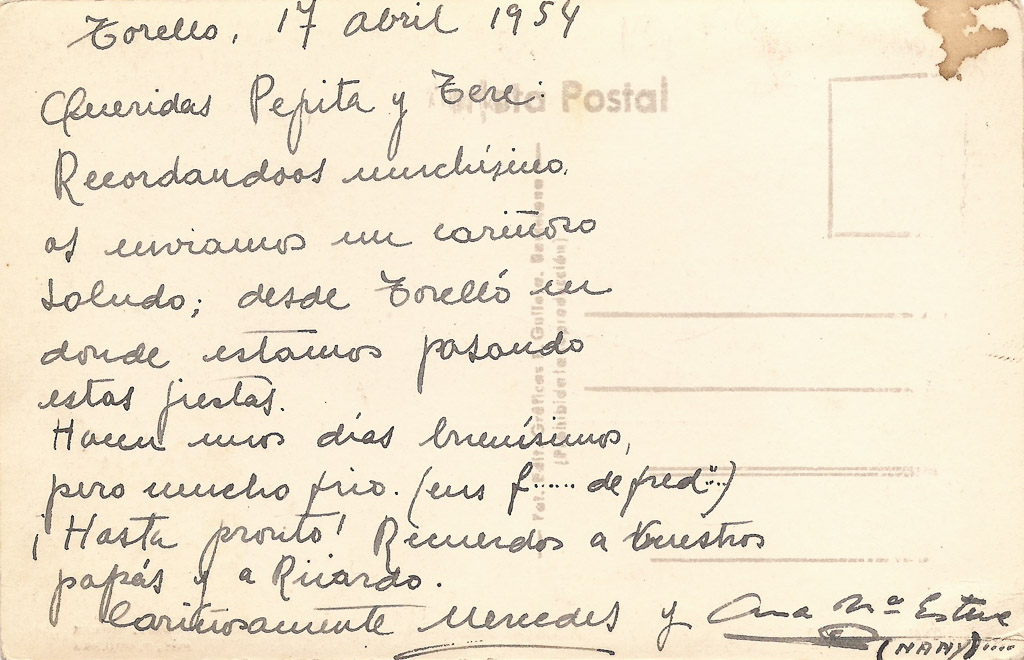 Torello, 17 abril 1954
Queridas Pepita y Tere:
Tarjeta Postal
Recordandoos muchísimo,
os enviamos un cariñoso
saludo; desde Torelló en
donde estamos pasando
estas fiestas.
Hacen unos días buenísimos,
pero mucho frio. (ens f...... de fred...)
¡Hasta pronto! Recuerdos a vuestros
papás y a Ricardo.
Cariñosamente Mercedes y Ana Mª Esteve
(NANY)....
(Prohibida la reproducción)